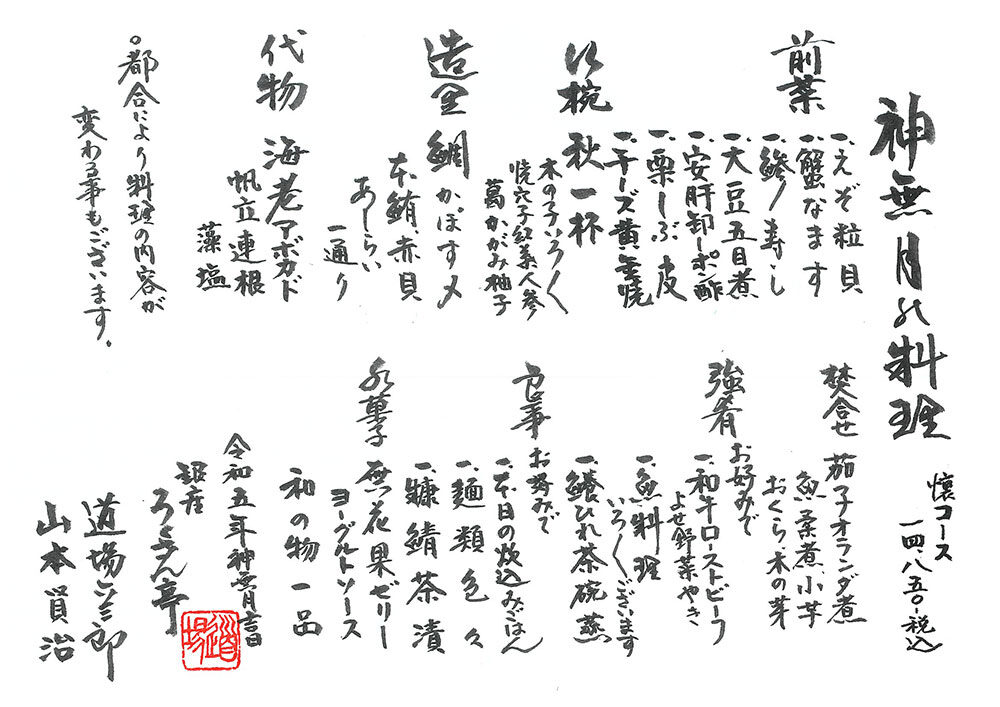 神無月の料理
懐コース
一四、八五〇税込
前菜
一、えぞ粒貝
一、蟹なます
一、鯵ノ寿し
一、大豆五目煮
一、安肝卸ーポン酢
一、栗しぶ皮
一、チーズ黄金焼
椀 秋一杯
木の子いろく
焼穴子紅葉人参
葛かがみ柚子
造里 鯛かぼす〆
本鮪、赤貝
あしらい
一通り
代物 海老アボカド
帆立連根
藻塩
○都合により料理の内容が
変わる事もございます。
焚合せ 茄子オランダ煮
魚葉煮、小芋
おくら・木の芽
強肴 お好みで
一、和牛ローストビーフ
よせ野菜やき
一、魚料理
いろくございます
一、鱶ひれ茶碗蒸
食事 お好みで
一、本日の炊込みごはん
一、麺類色々
一、糠鯖茶漬
水菓子 無花果ゼリー
ヨーグルトソース
和の物一品
令和五年神無月吉日
銀座
ろくさん亭
道場六三郎
山本賢治
道場